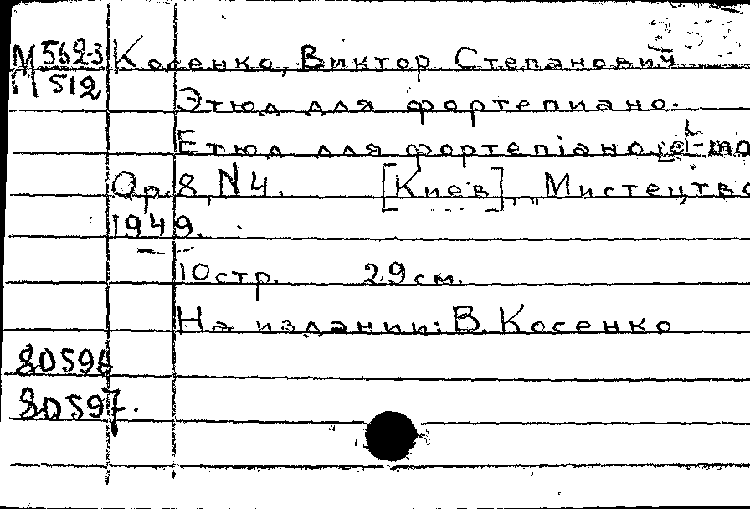 253
М 562-3 Косенко, Виктор Степанович
М 512
Этюд для фортепиано.
Етюд для фортепіано, cl-mo
Op. 8, N 4. [Киев], „Мистецтво
1949.
10 стр. 29 см.
На издании: В. Косенко
80596
80597.